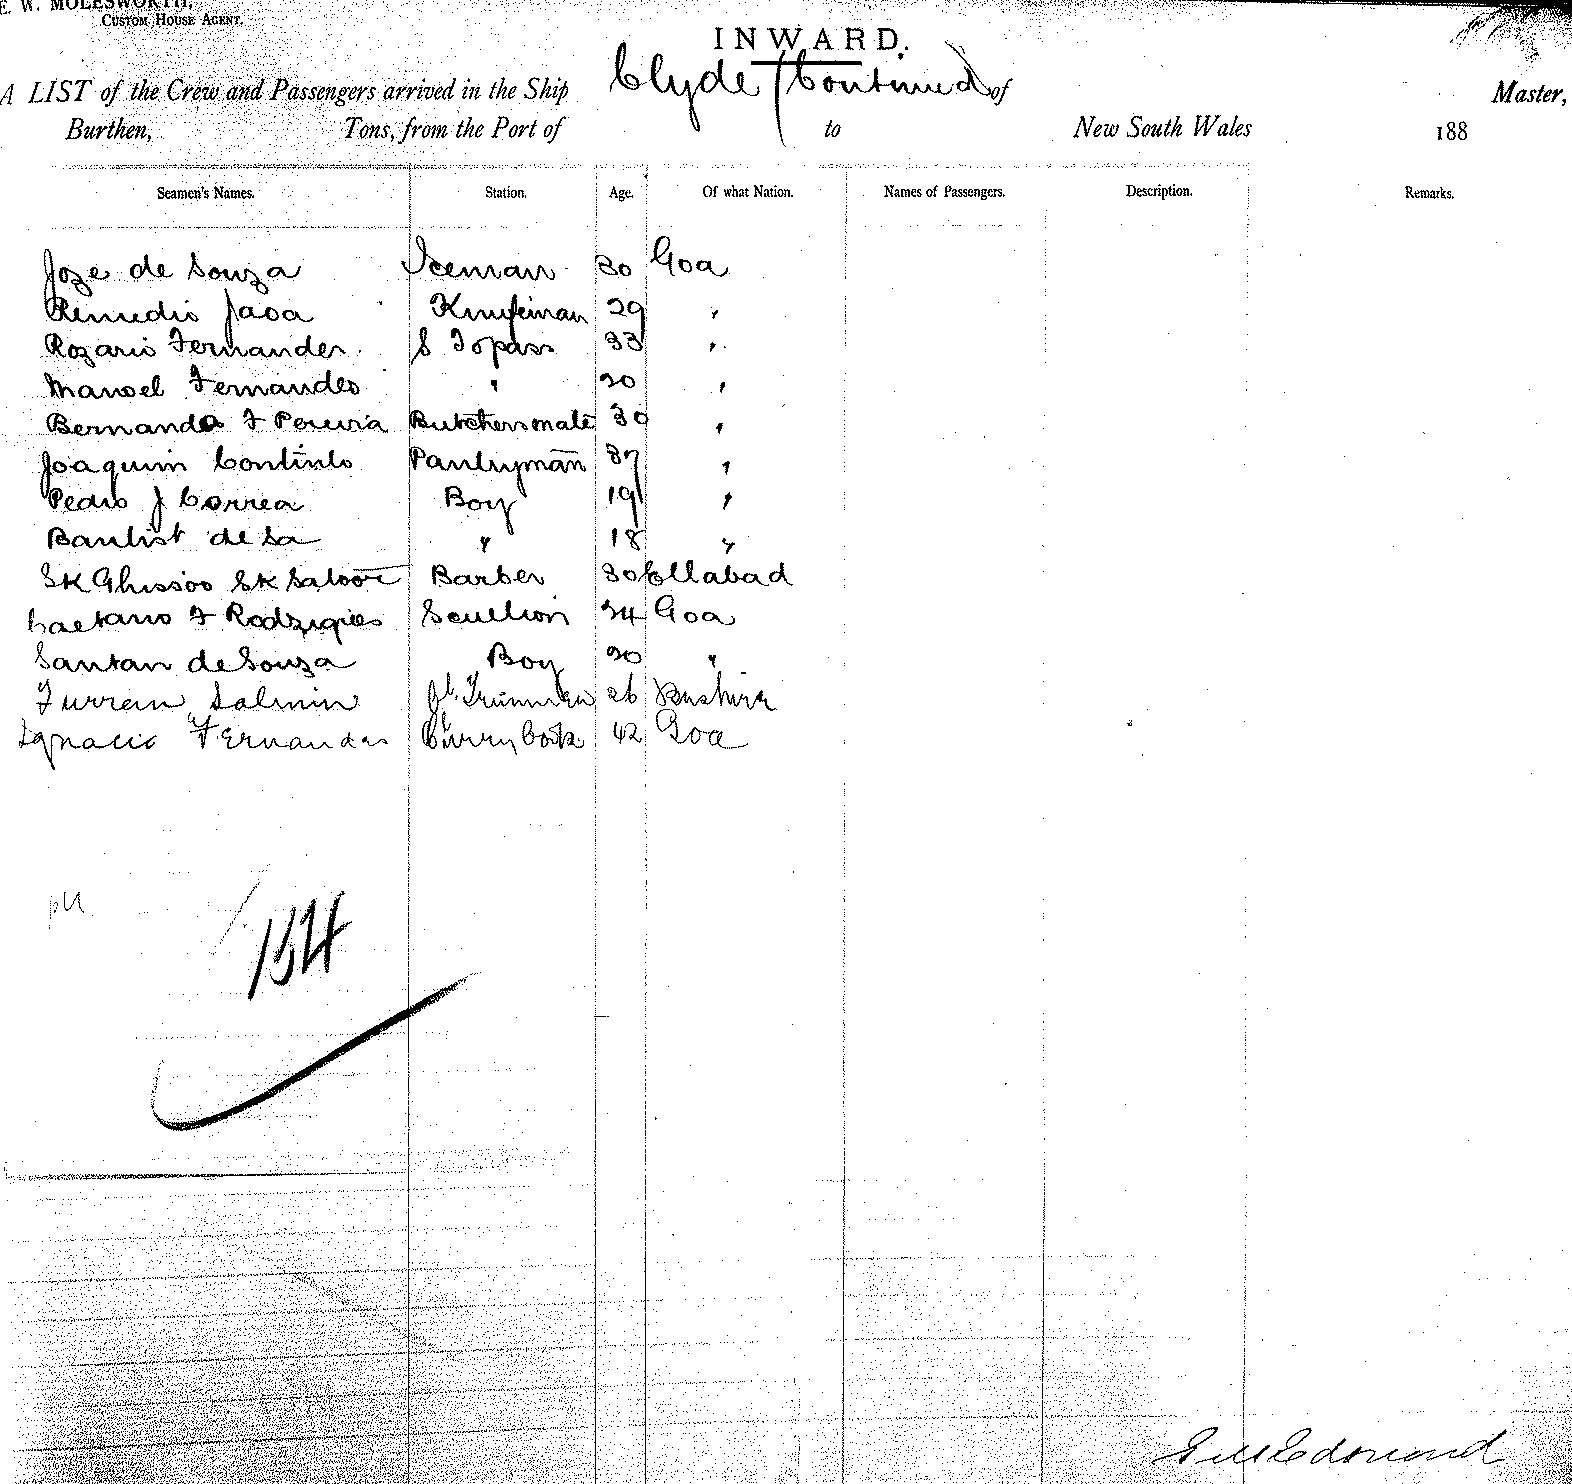 E. W. MOLESWORTH,
CUSTOM HOUSE AGENT.
INWARD.
A LIST of the Crew and Passengers arrived in the Ship Clyde (Continued) of Master,
Burthen, Tons, from the Port of to New South Wales 188
Seamen's Names. Station. Age. Of what Nation. Names of Passengers. Description. Remarks.
Joze de Souza Iceman 30 Goa
Remedio Jaoa Knifeman 29 "
Rozario Fernandes S Topass 33 "
Manoel Fernandes " 20 "
Bernando F Pereira Butchersmate 30 "
Joaquim Continto Pantryman 37 "
Pedro J Correa Boy 19 "
Bautist de Sa " 18 "
SK Ghissoo SK Saloor Barber 30 Ellabad
Caetano F Rodzigies Scullion 24 Goa
Santan de Souza Boy 20 "
Furrein Salmin Trimmer 26 Bushire
Ignacio Fernandes Curry Cook 42 Goa
154